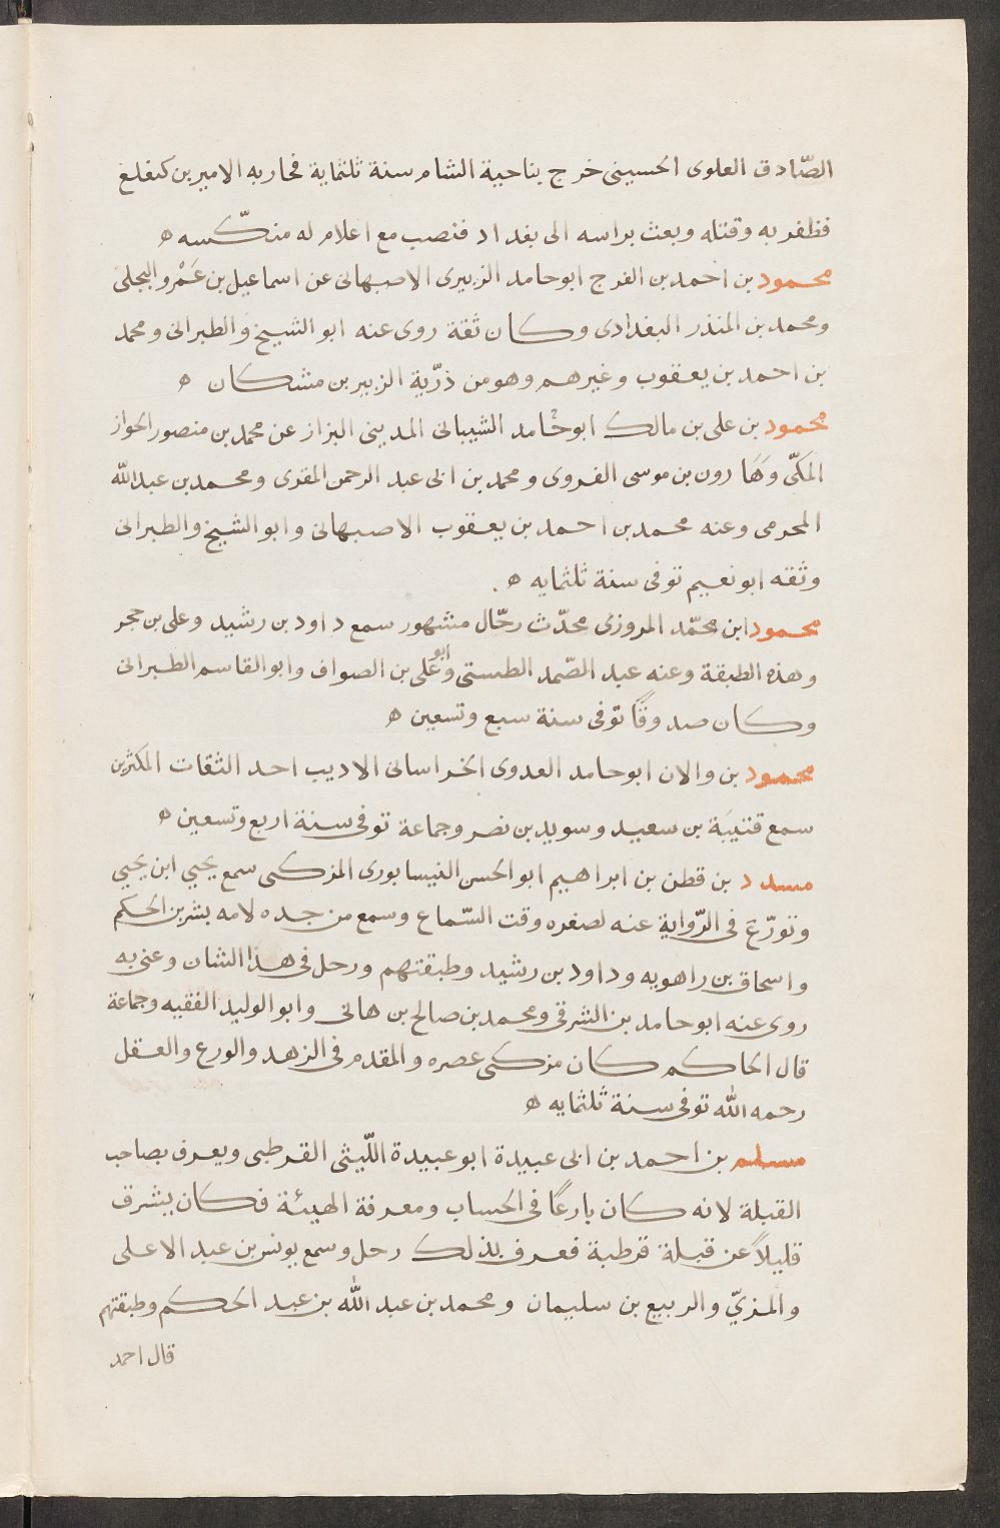 الصّادق العلوى الحسينى خرج بناحية الشام سنة ثلثماية فحاربه الامير بن كيغلغ
فظفر به وقتله وبعث براسه الى بغداد فنصب مع اعلام له منكّسه ه
محمود بن احمد بن الفرج ابو حامد الزبيرى الاصبهانى عن اسماعيل بن عَمْرو البجلى
ومحمد بن المنذر البغدادى وكان ثقة روى عنه ابو الشيخ والطبرانى ومحمد
بن احمد بن يعقوب وغيرهم وهو من ذرّية الزبير بن مشكان ه
محمود بن على بن مالك ابو حامد الشيبانى المدينى البزاز عن محمد بن منصور الجواز
المكّى وهَارون بن موسى الفروى ومحمد بن ابى عبد الرحمن المقرى ومحمد بن عبد الله
المخرمى وعنه محمد بن احمد بن يعقوب الاصبهانى وابو الشيخ والطبرانى
وثقه ابو نعيم توفى سنة ثلثمايه ه
محمود ابن محمّد المروزى محدّث رحّال مشهور سمع داود بن رشيد وعلى بن حجر
وهذه الطبقة وعنه عبد الصّمد الطستى وابو على بن الصواف وابو القاسم الطبرانى
وكان صدوقًا توفى سنة سبع وتسعين ه
محمود بن والان ابو حامد العدوى الخراسانى الاديب احد الثقات المكثرين
سمع قتيبَة بن سعيد وسويد بن نصر وجماعة توفى سنة اربع وتسعين ه
مسدد بن قطن بن ابراهيم ابو الحسن النيسابورى المزكى سمع يحيي ابن يحيي
وتورّعَ فى الرّواية عنه لصغره وقت السّماع وسمع من جده لامه بشر بن الحكم
واسحاق بن راهويه وداود بن رشيد وطبقتهم ورحل فى هذا الشان وعنى به
روى عنه ابو حامد بن الشرقى ومحمد بن صالح بن هانى وابو الوليد الفقيه وجماعة
قال الحاكم كان مزكى عصره والمقدم فى الزهد والورع والعقل
رحمه الله توفى سنة ثلثمايه ه
مسلم بن احمد بن ابى عبيدة ابو عبيدة اللّيثى القرطبى ويعرف بصاحب
القبلة لانه كان بارعًا فى الحساب ومعرفة الهيئة فكان يشرق
قليلاً عن قبلة قرطبة فعرف بذلك رحل وسمع يونس بن عبد الاعلى
والمزنيّ والربيع بن سليمان ومحمد بن عبد الله بن عبد الحكم وطبقتهم
قال احمد